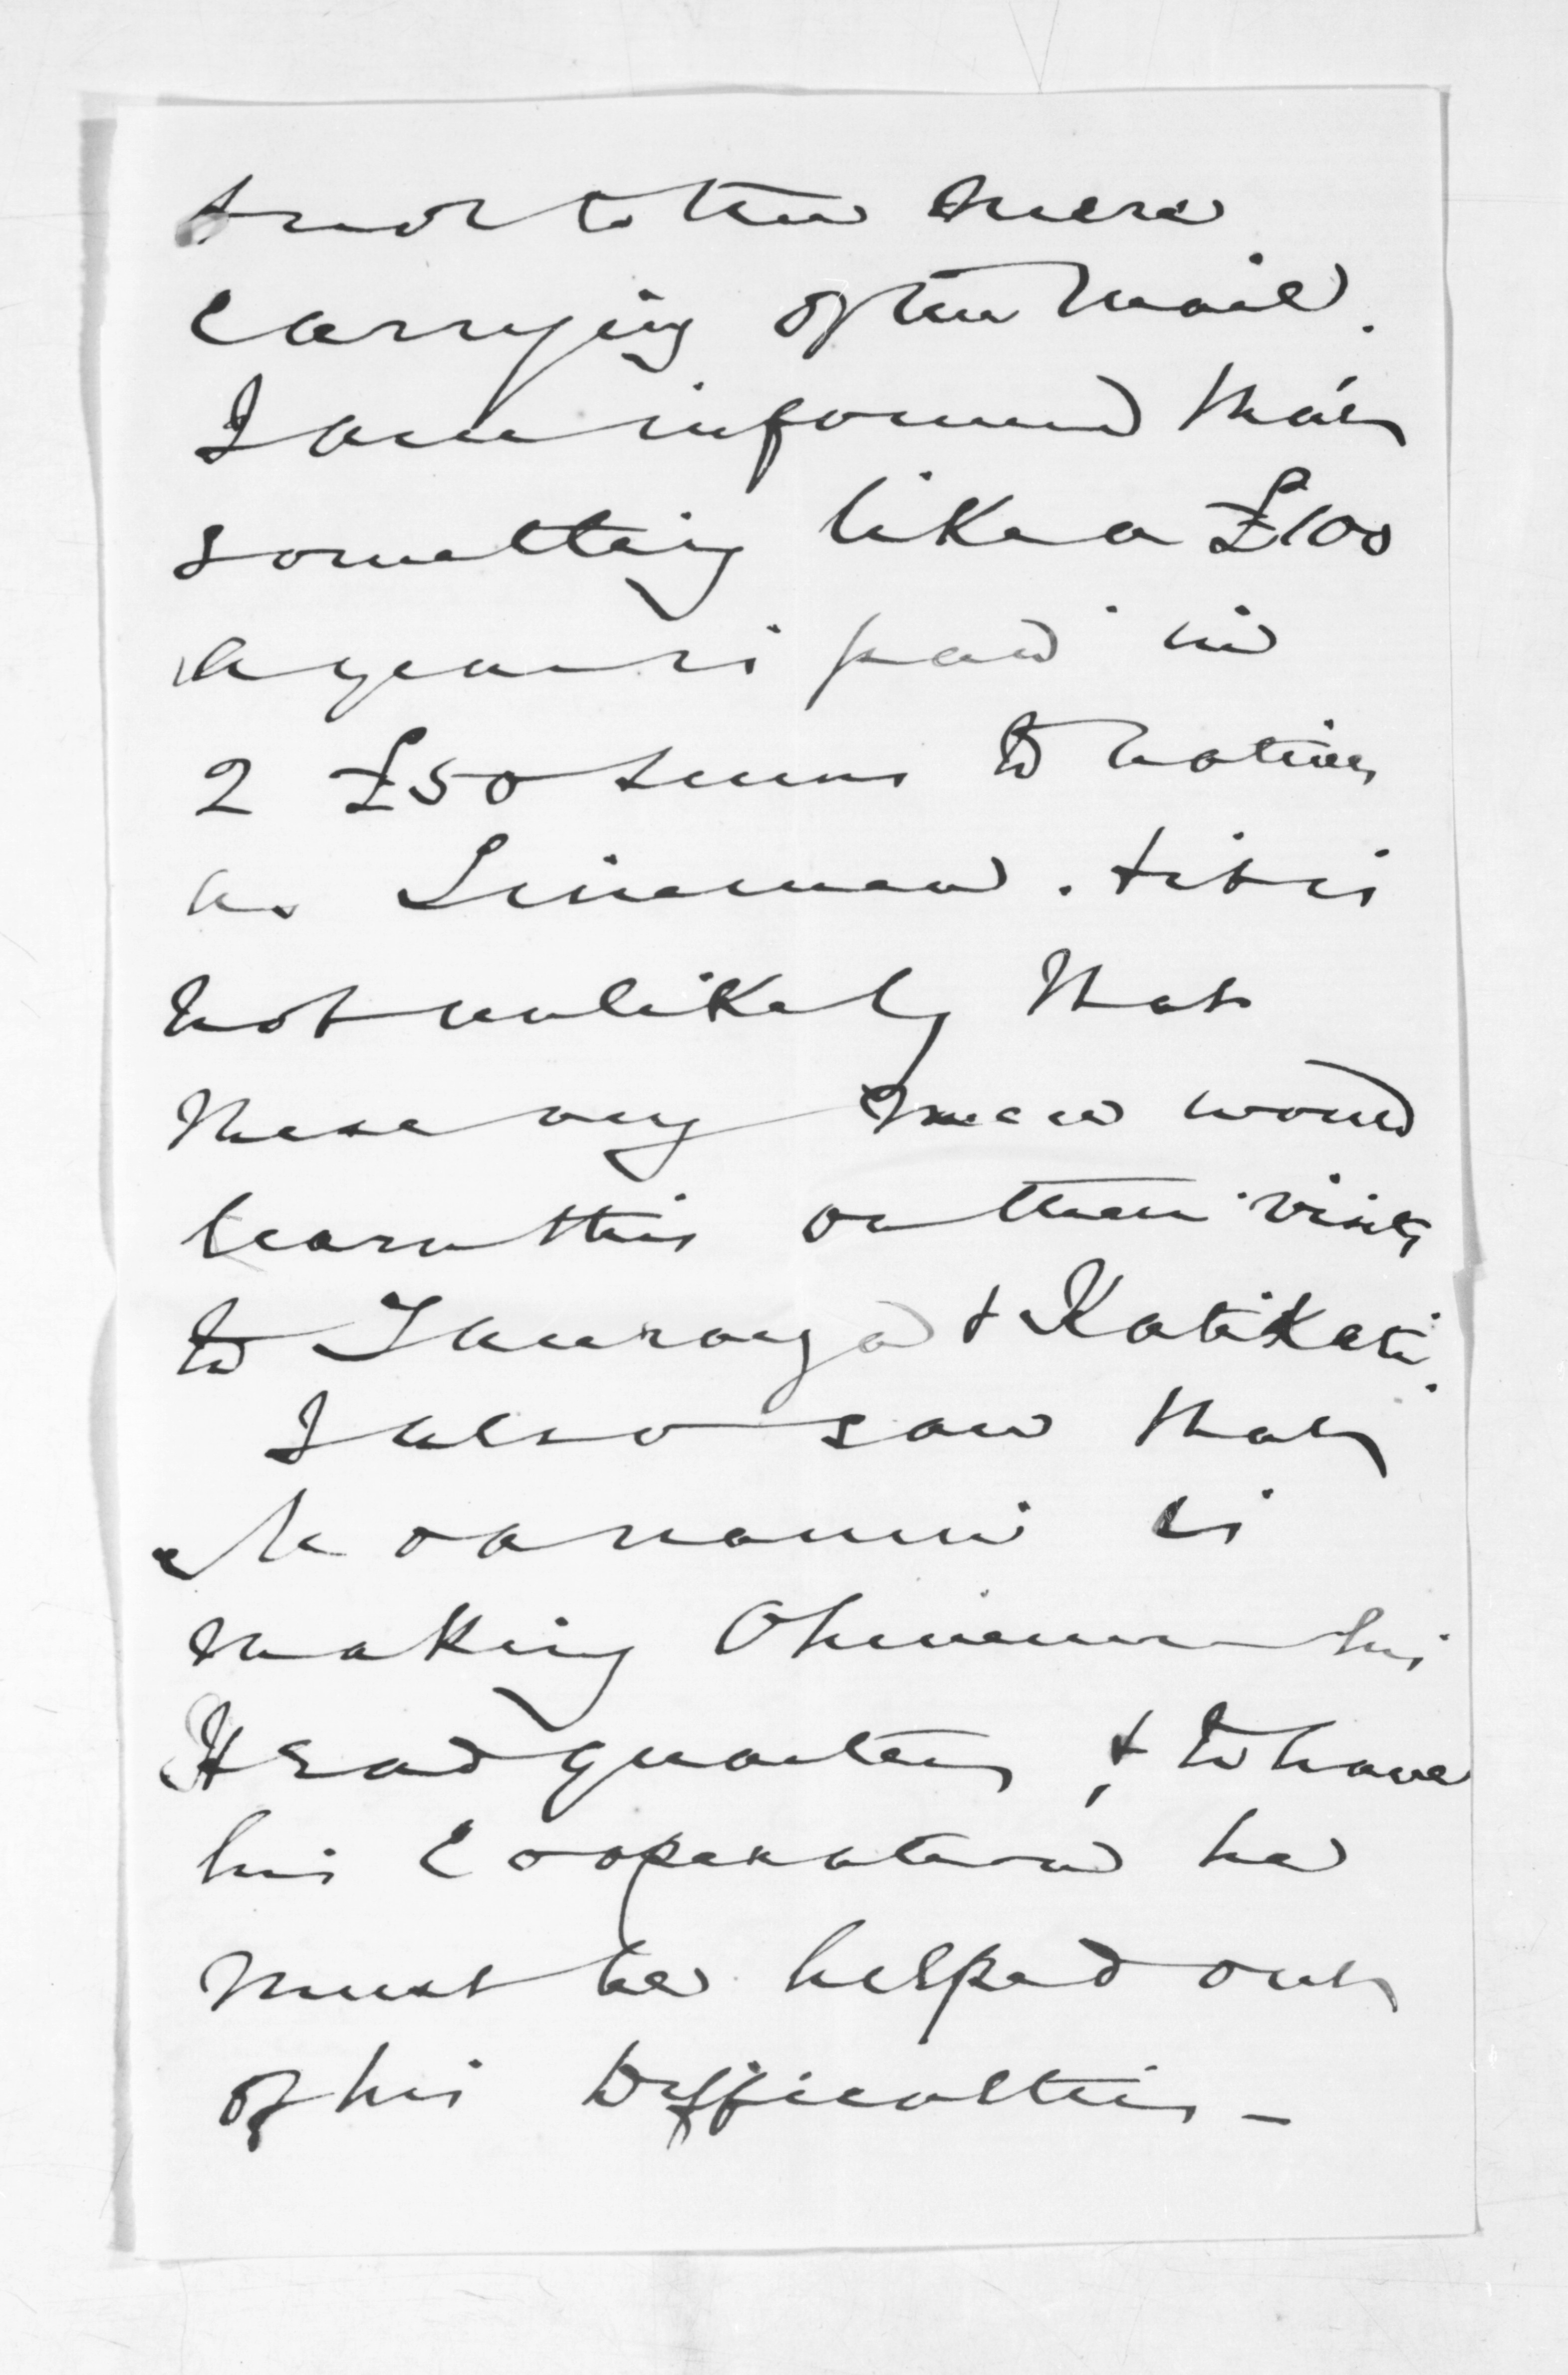 & not to the mere
carrying of the mail.
I am informed that
something like a £100
a year is paid in
2 £50 sums to natives
as Linemen. & it is
not unlikely that
these very men would
learn this on their visits
to Tauranga & Katikati.
I also saw that
Moananui is
making Ohinemuri his
Headquarters, & to have
his Cooperation he
must be helped out
of his Difficulties –